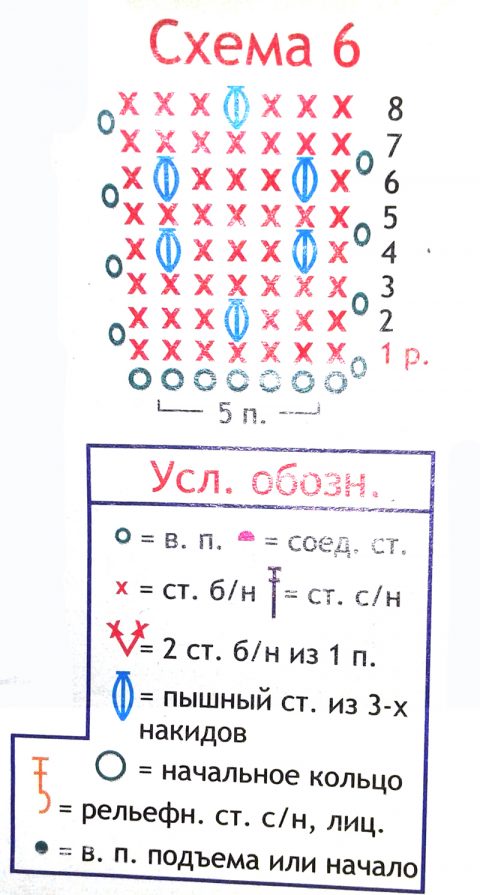 Схема 6
8
7
6
5
4
3
2
1 р.
5 п.
Усл. обозн.
= в. п. = соед. ст.
= ст. б/н = ст. с/н
= 2 ст. б/н из 1 п.
= пышный ст. из 3-х
накидов
= начальное кольцо
= рельефн. ст. с/н, лиц.
= в. п. подъема или начало